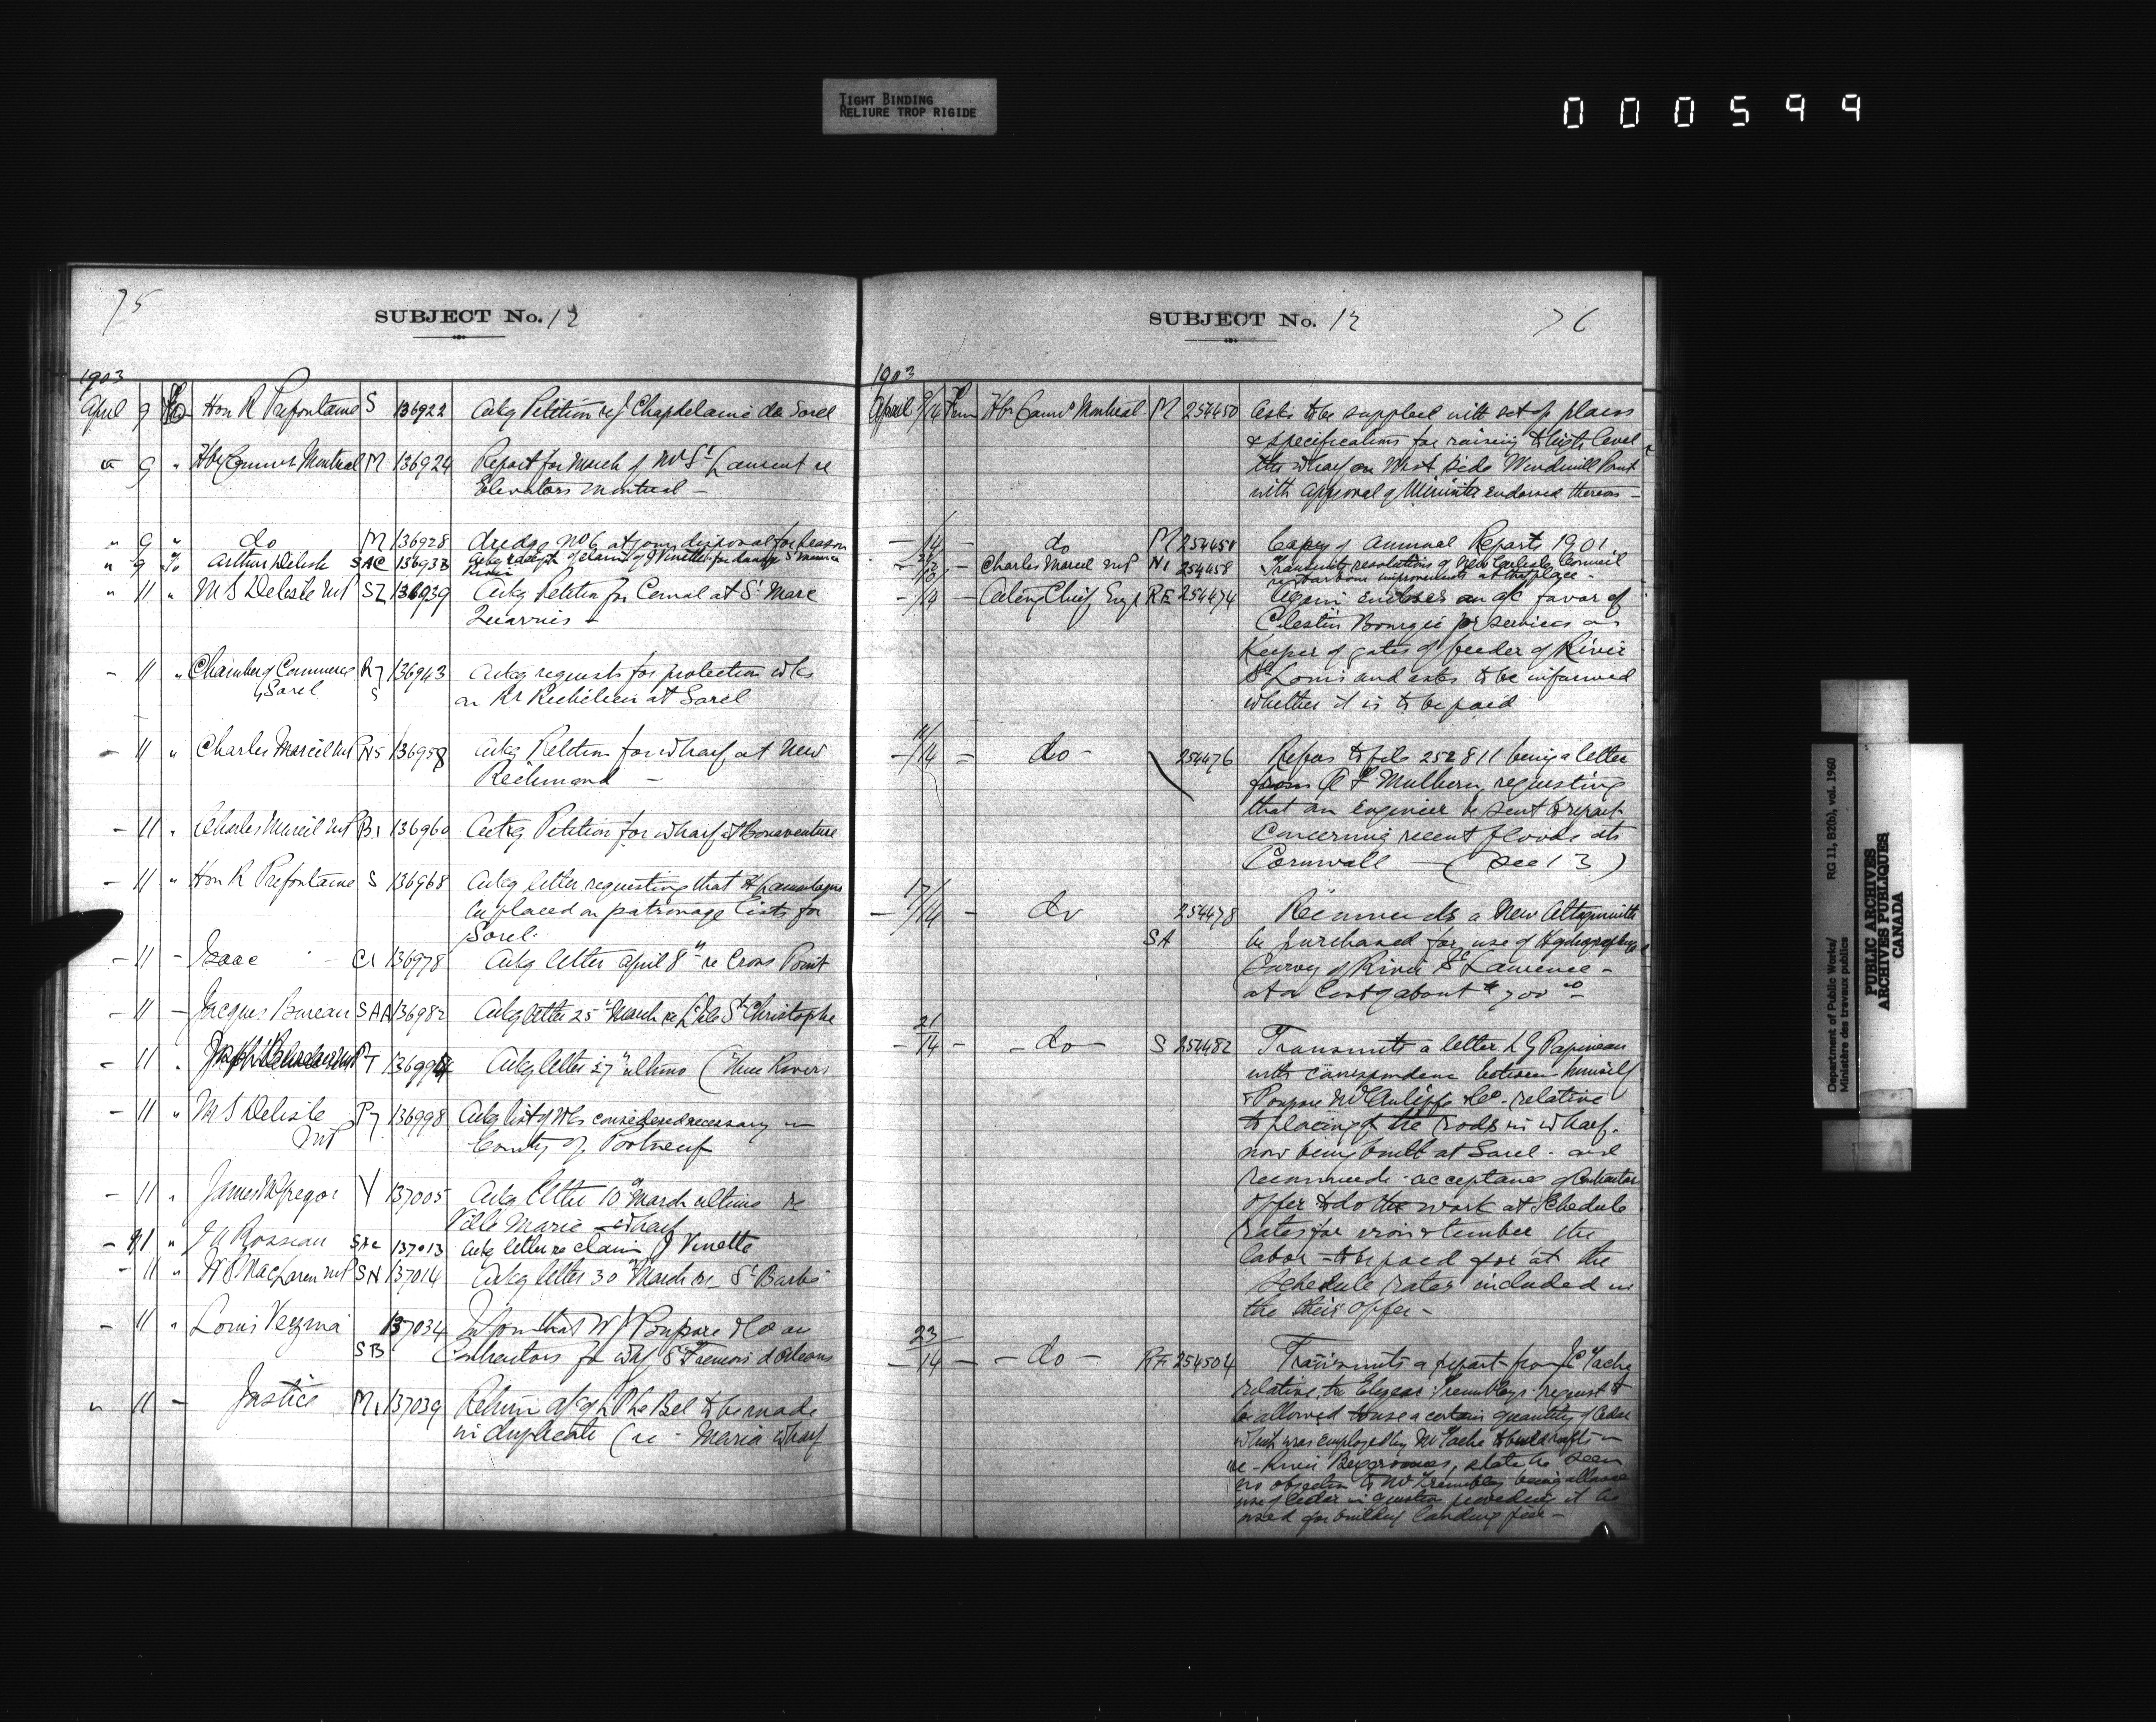 TIGHT BINDING
RELIURE TROP RIGIDE
000599
75
SUBJECT No. 12
1903
April 9 To Hon R Prefontaine S 136922 Ackg Petition re J Chapdelaine de Sorel
" 9 " Hbr Commrs Montreal M 136924 Report for March of Mr St Laurent re
Elevators Montreal -
" 9 " do M 136928 dredge No 6 at your disposal for season
" 9 " Arthur Delisle SAC 136933 Ackg receipt of claim of J Vinette for damage St Maurice
River
" 11 " M S Delisle MP SZ 136939 Ackg Petition for Canal at St Marc
Quarries -
- 11 " Chamber of Commerce R7 136943 Ackg requests for protection wks
Sorel S on Rr Richelieu at Sorel
- 11 " Charles Marcil MP N5 136958 Ackg Petition for wharf at New
Richmond -
- 11 " Charles Marcil MP B1 136960 Ackg Petition for wharf at Bonaventure
- 11 " Hon R Prefontaine S 136968 Ackg letter requesting that H
be placed on patronage lists for
Sorel.
- 11 - Isaac C1 136978 Ackg letter April 8th re Cross Point
- 11 - Jacques Bureau SAA 136982 Ackg letter 25th March re St Christophe
- 11 " T 136994 Ackg letter 27th ultimo (Three Rivers
- 11 " M S Delisle P7 136998 Ackg list of wks considered necessary in
MP County of Portneuf
- 11 " James McGregor V 137005 Ackg letter 10th March ultimo re
Ville Marie wharf
- 11 " J A Rosseau SAC 137013 Ackg letter re claim J Vinette
- 11 " MacLaren MP SN 137014 Ackg letter 30th March re St Barbe
- 11 " Louis Vezina 137034 Inform that W J Poupore & Co are
SB Contractors for whf St Francois d'Orleans
" 11 - Justice M1 137039 Return of Le Bel to be made
in duplicate (re - Maria wharf
SUBJECT No. 12
76
1903
April 9/14 From Hbr Commrs Montreal M 254450 Asks to be supplied with set of plans
& specifications for raising to high level
the wharf on West side Windmill Point
with approval of Minister endorsed thereon -
- 14 - do M 254451 Copy of Annual Reports 1901
- Charles Marcil MP N1 254458 Transmits resolutions of New Carlisle Council
re harbour improvements at that place -
- 14 - Acting Chief Eng RE 254474 Again encloses an a/c favor of
Celestin Bourgie for services as
Keeper of gates of feeder of River
St Louis and asks to be informed
whether it is to be paid
- 14 - do - 254476 Refers to file 252811 being a letter
from Mulhern requesting
that an Engineer be sent to report
concerning recent floods at
Cornwall - (See 13)
17
- 14 - do 254478 Recommends a New
SA be purchased for use of Hydrographical
Survey of River St Lawrence -
at a Cost of about $700.00
21
- 14 - - do - S 254482 Transmits a letter L G Papineau
with correspondence between himself
& Poupore McAuliffe & Co - relative
to placing of the rods in wharf
now being built at Sorel - and
recommends acceptance of Contractors
offer to do the work at Schedule
rates for iron & timber the
labor - to be paid for at the
Schedule rates included in
the their offer -
23
- 14 - - do - RE 254504 Transmits a report from J C Tache
relative to Elzear Tremblays request to
be allowed to use a certain quantity of Cedar
which was employed by Mr Tache to build rafts in
re - River, states he sees
no objection to Mr Tremblay being allowed
use of Cedar in question providing it be
used for building landing pier -
Department of Public Works/
Ministère des travaux publics
RG 11, B2(b), vol. 1960
PUBLIC ARCHIVES
ARCHIVES PUBLIQUES
CANADA